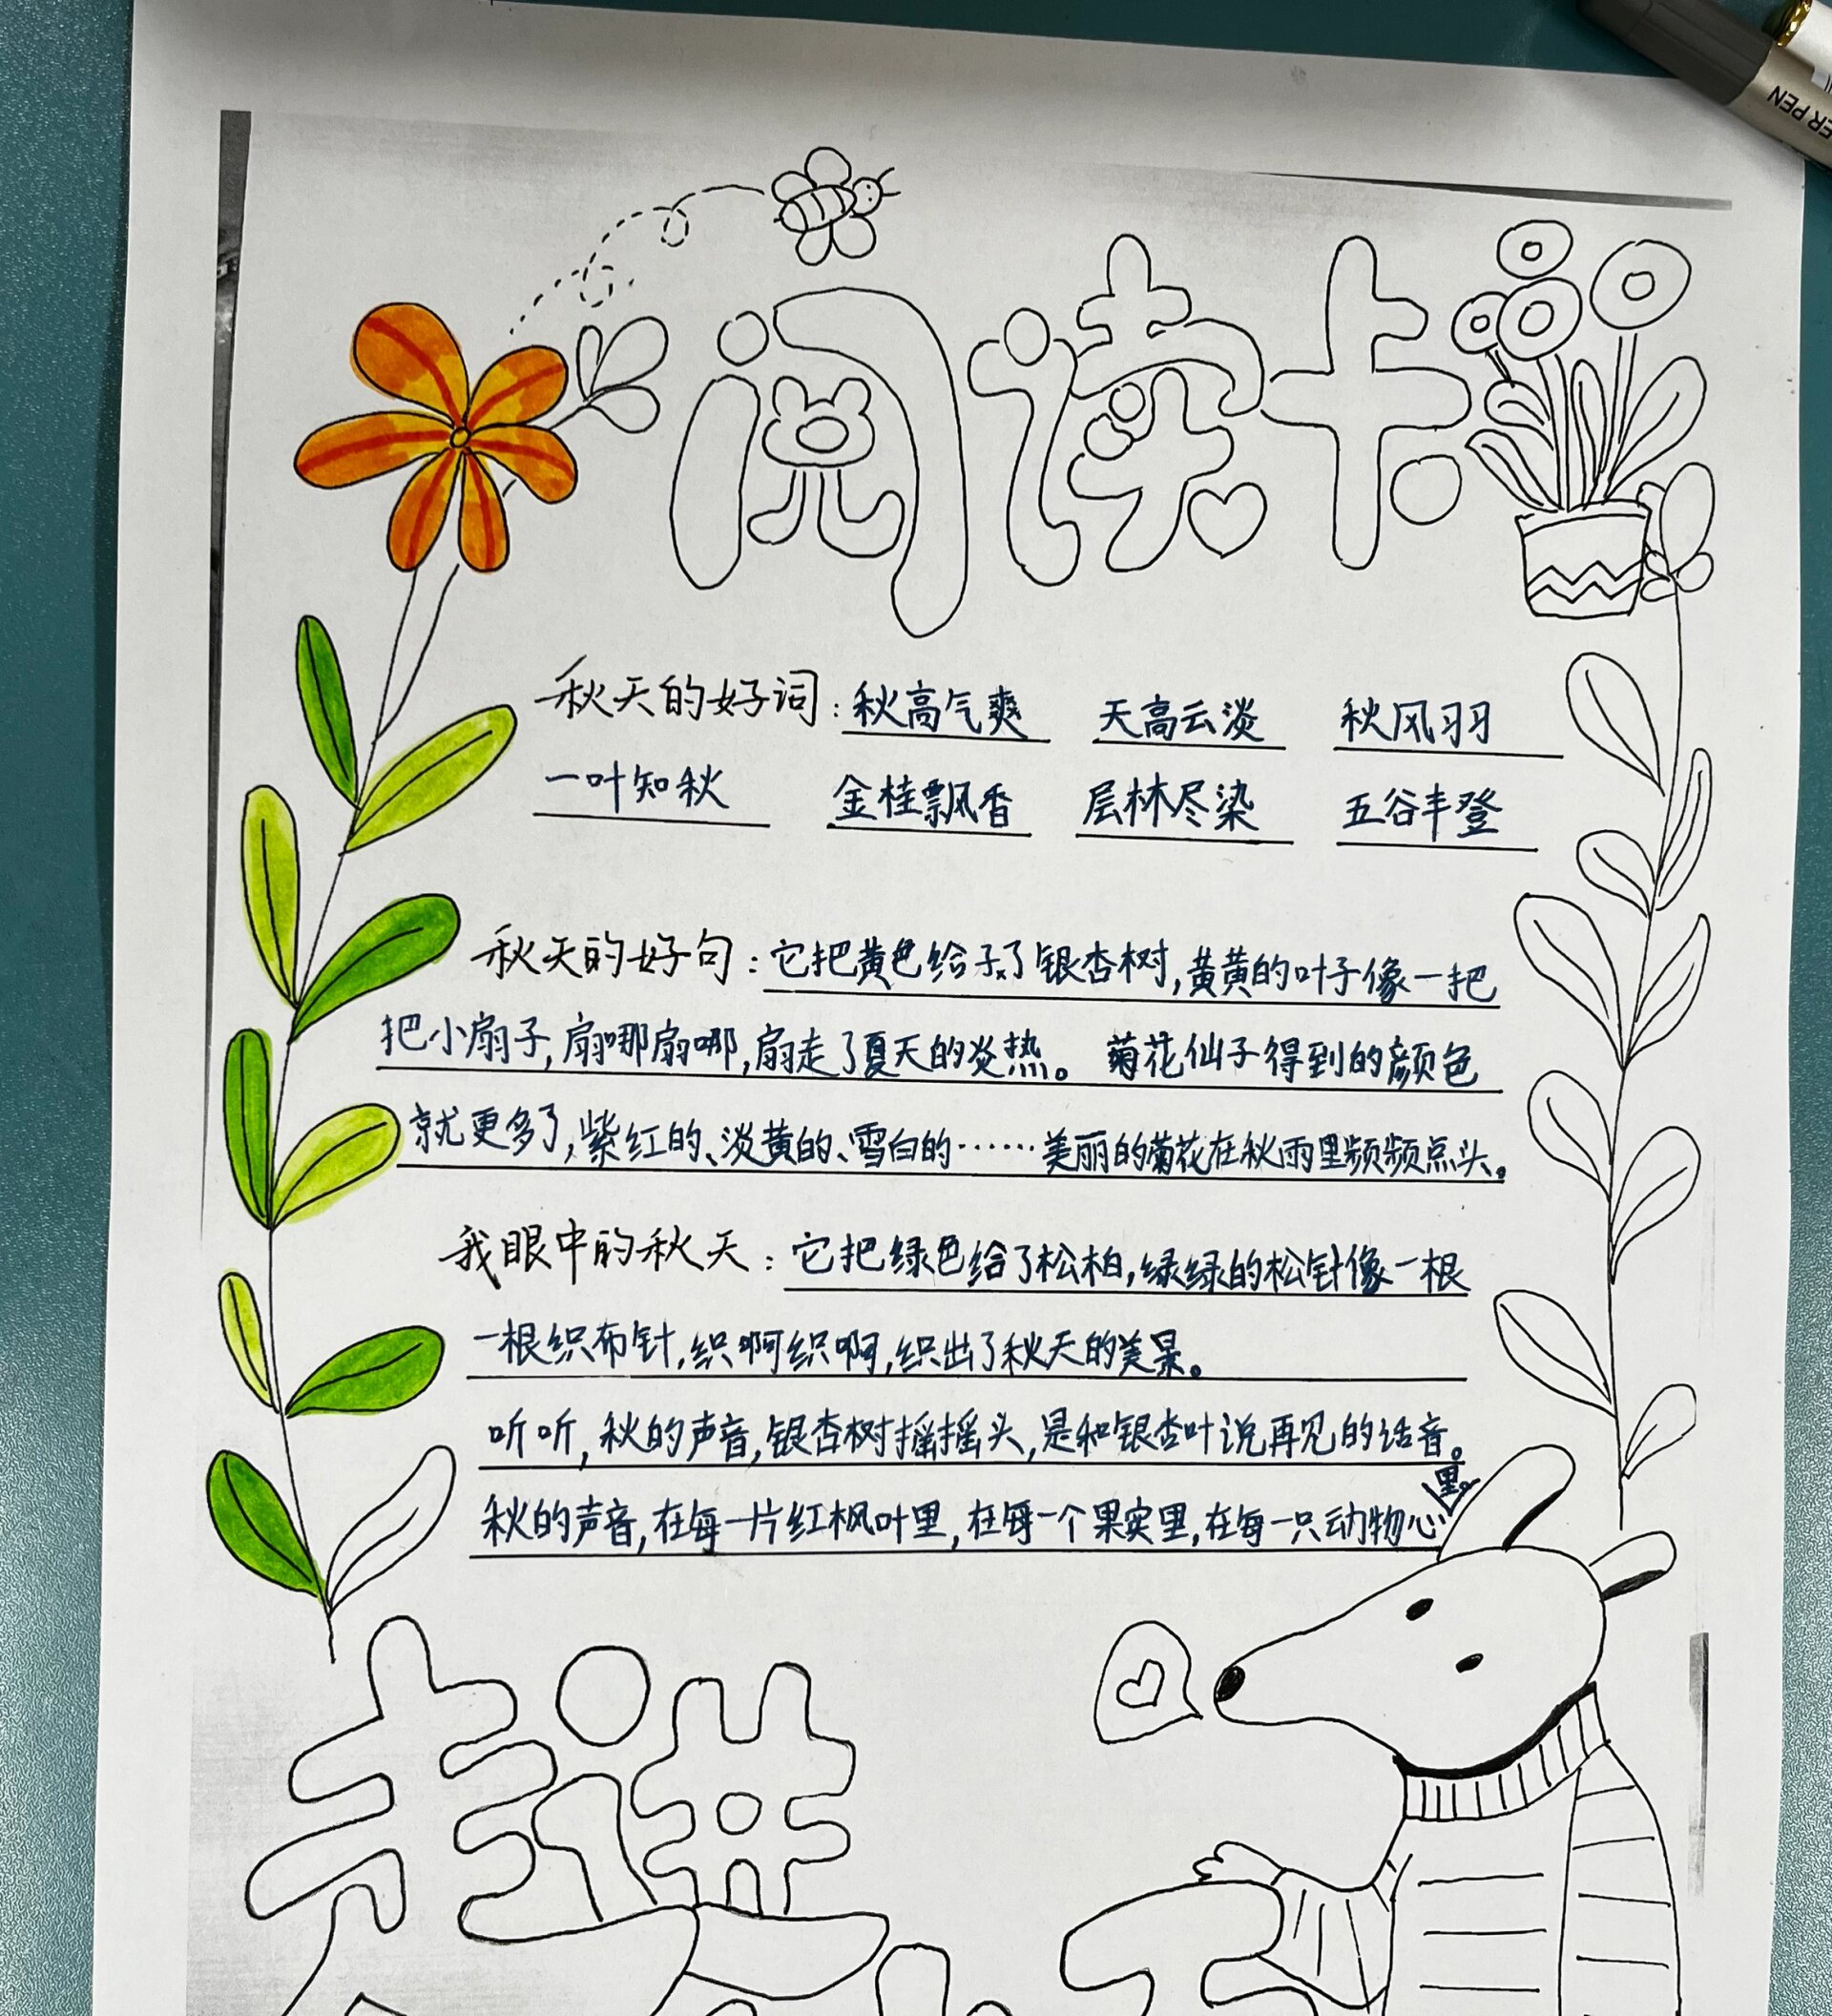 ER PEN
阅读卡
秋天的好词：秋高气爽 天高云淡 秋风羽
一叶知秋 金桂飘香 层林尽染 五谷丰登
秋天的好句：它把黄色给了银杏树，黄黄的叶子像一把
把小扇子，扇哪扇哪，扇走了夏天的炎热。菊花仙子得到的颜色
就更多了，紫红的、淡黄的、雪白的……美丽的菊花在秋雨里频频点头。
我眼中的秋天：它把绿色给了松柏，绿绿的松针像一根
一根织布针，织啊织啊，织出了秋天的美景。
听听，秋的声音，银杏树摇摇头，是和银杏叶说再见的话音。
秋的声音，在每一片红枫叶里，在每一个果实里，在每一只动物心里。
走进